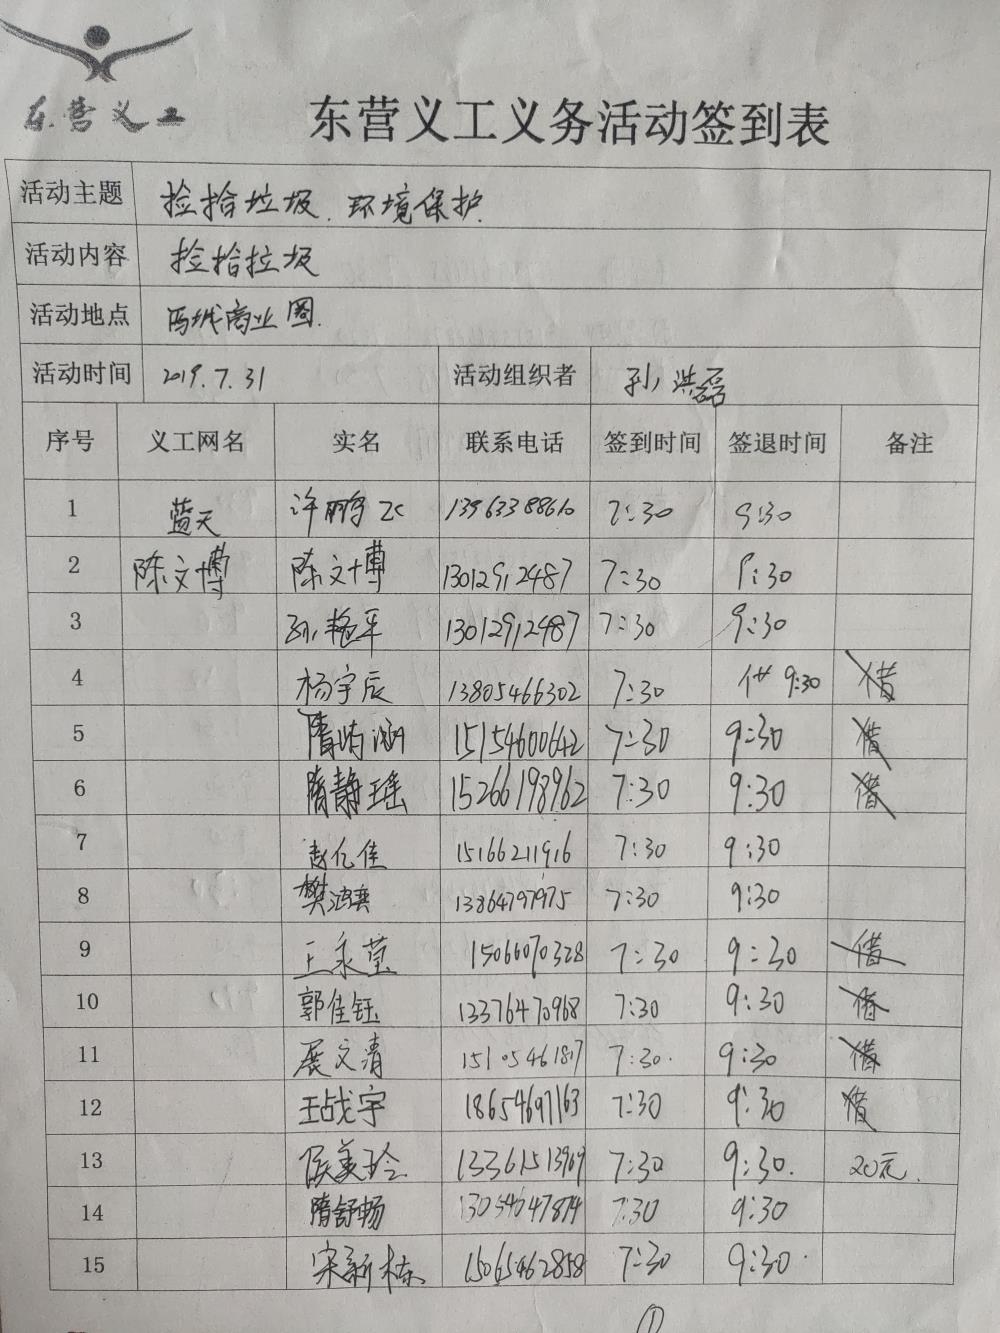 东营义工
东营义工义务活动签到表
活动主题 捡拾垃圾、环境保护
活动内容 捡拾垃圾
活动地点 西城商业圈.
活动时间 2019.7.31 活动组织者 孙洪磊
序号 义工网名 实名 联系电话 签到时间 签退时间 备注
1 蓝天 许鹏飞 13963388610 7:30 9:30
2 陈文博 陈文博 13012912487 7:30 9:30
3 孙艳平 13012912487 7:30 9:30
4 杨宇辰 13805466302 7:30 9:30 借
5 隋均涵 15154600642 7:30 9:30 借
6 隋静瑶 15266198962 7:30 9:30 借
7 赵亿佳 15166211916 7:30 9:30
8 樊鸿奥 13864797975 7:30 9:30
9 王永莹 15066070328 7:30 9:30 借
10 郭佳钰 13376470968 7:30 9:30 借
11 展文清 15105461817 7:30. 9:30 借
12 王战宇 18654697163 7:30 9:30 借
13 侯美玲 13361513969 7:30 9:30. 20元.
14 隋舒畅 13054647874 7:30 9:30
15 宋新栋 15065462858 7:30 9:30.
①